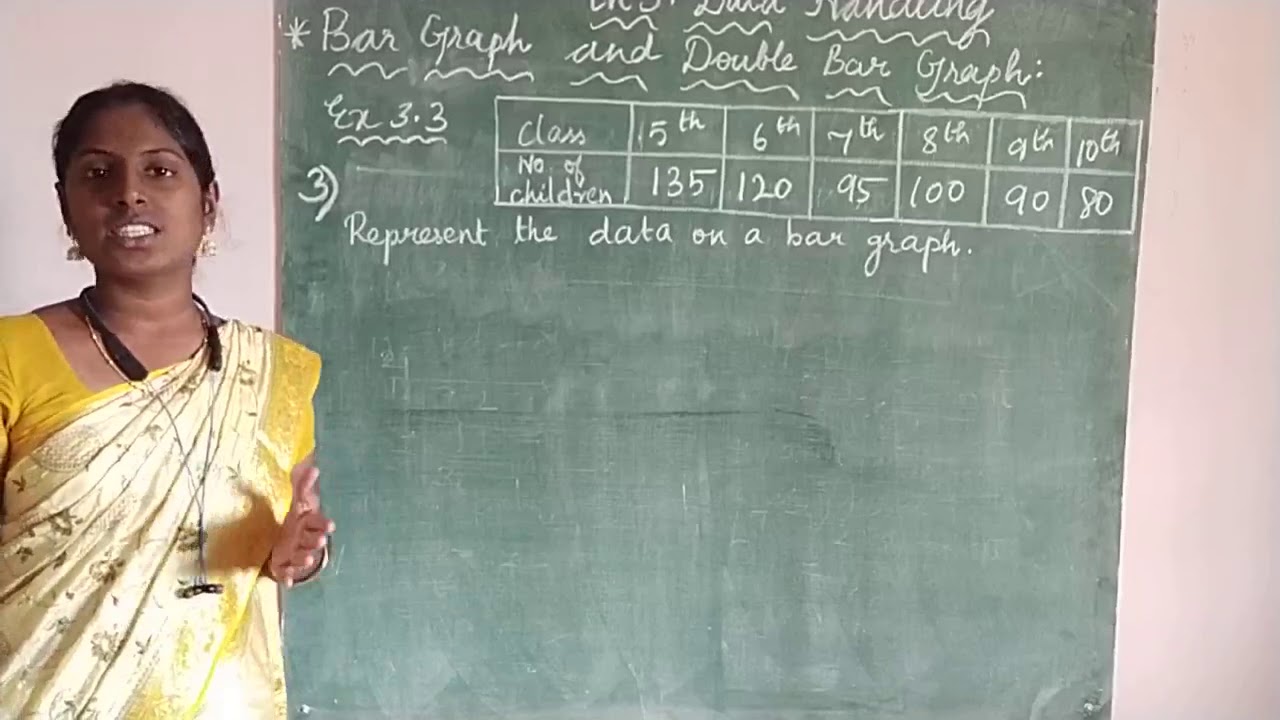 Ch 3. Data Handling
* Bar Graph and Double Bar Graph:
Ex 3.3
Class 5th 6th 7th 8th 9th 10th
No. of children 135 120 95 100 90 80
3)
Represent the data on a bar graph.